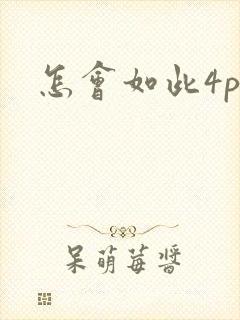 怎會如此4p
呆萌莓醬